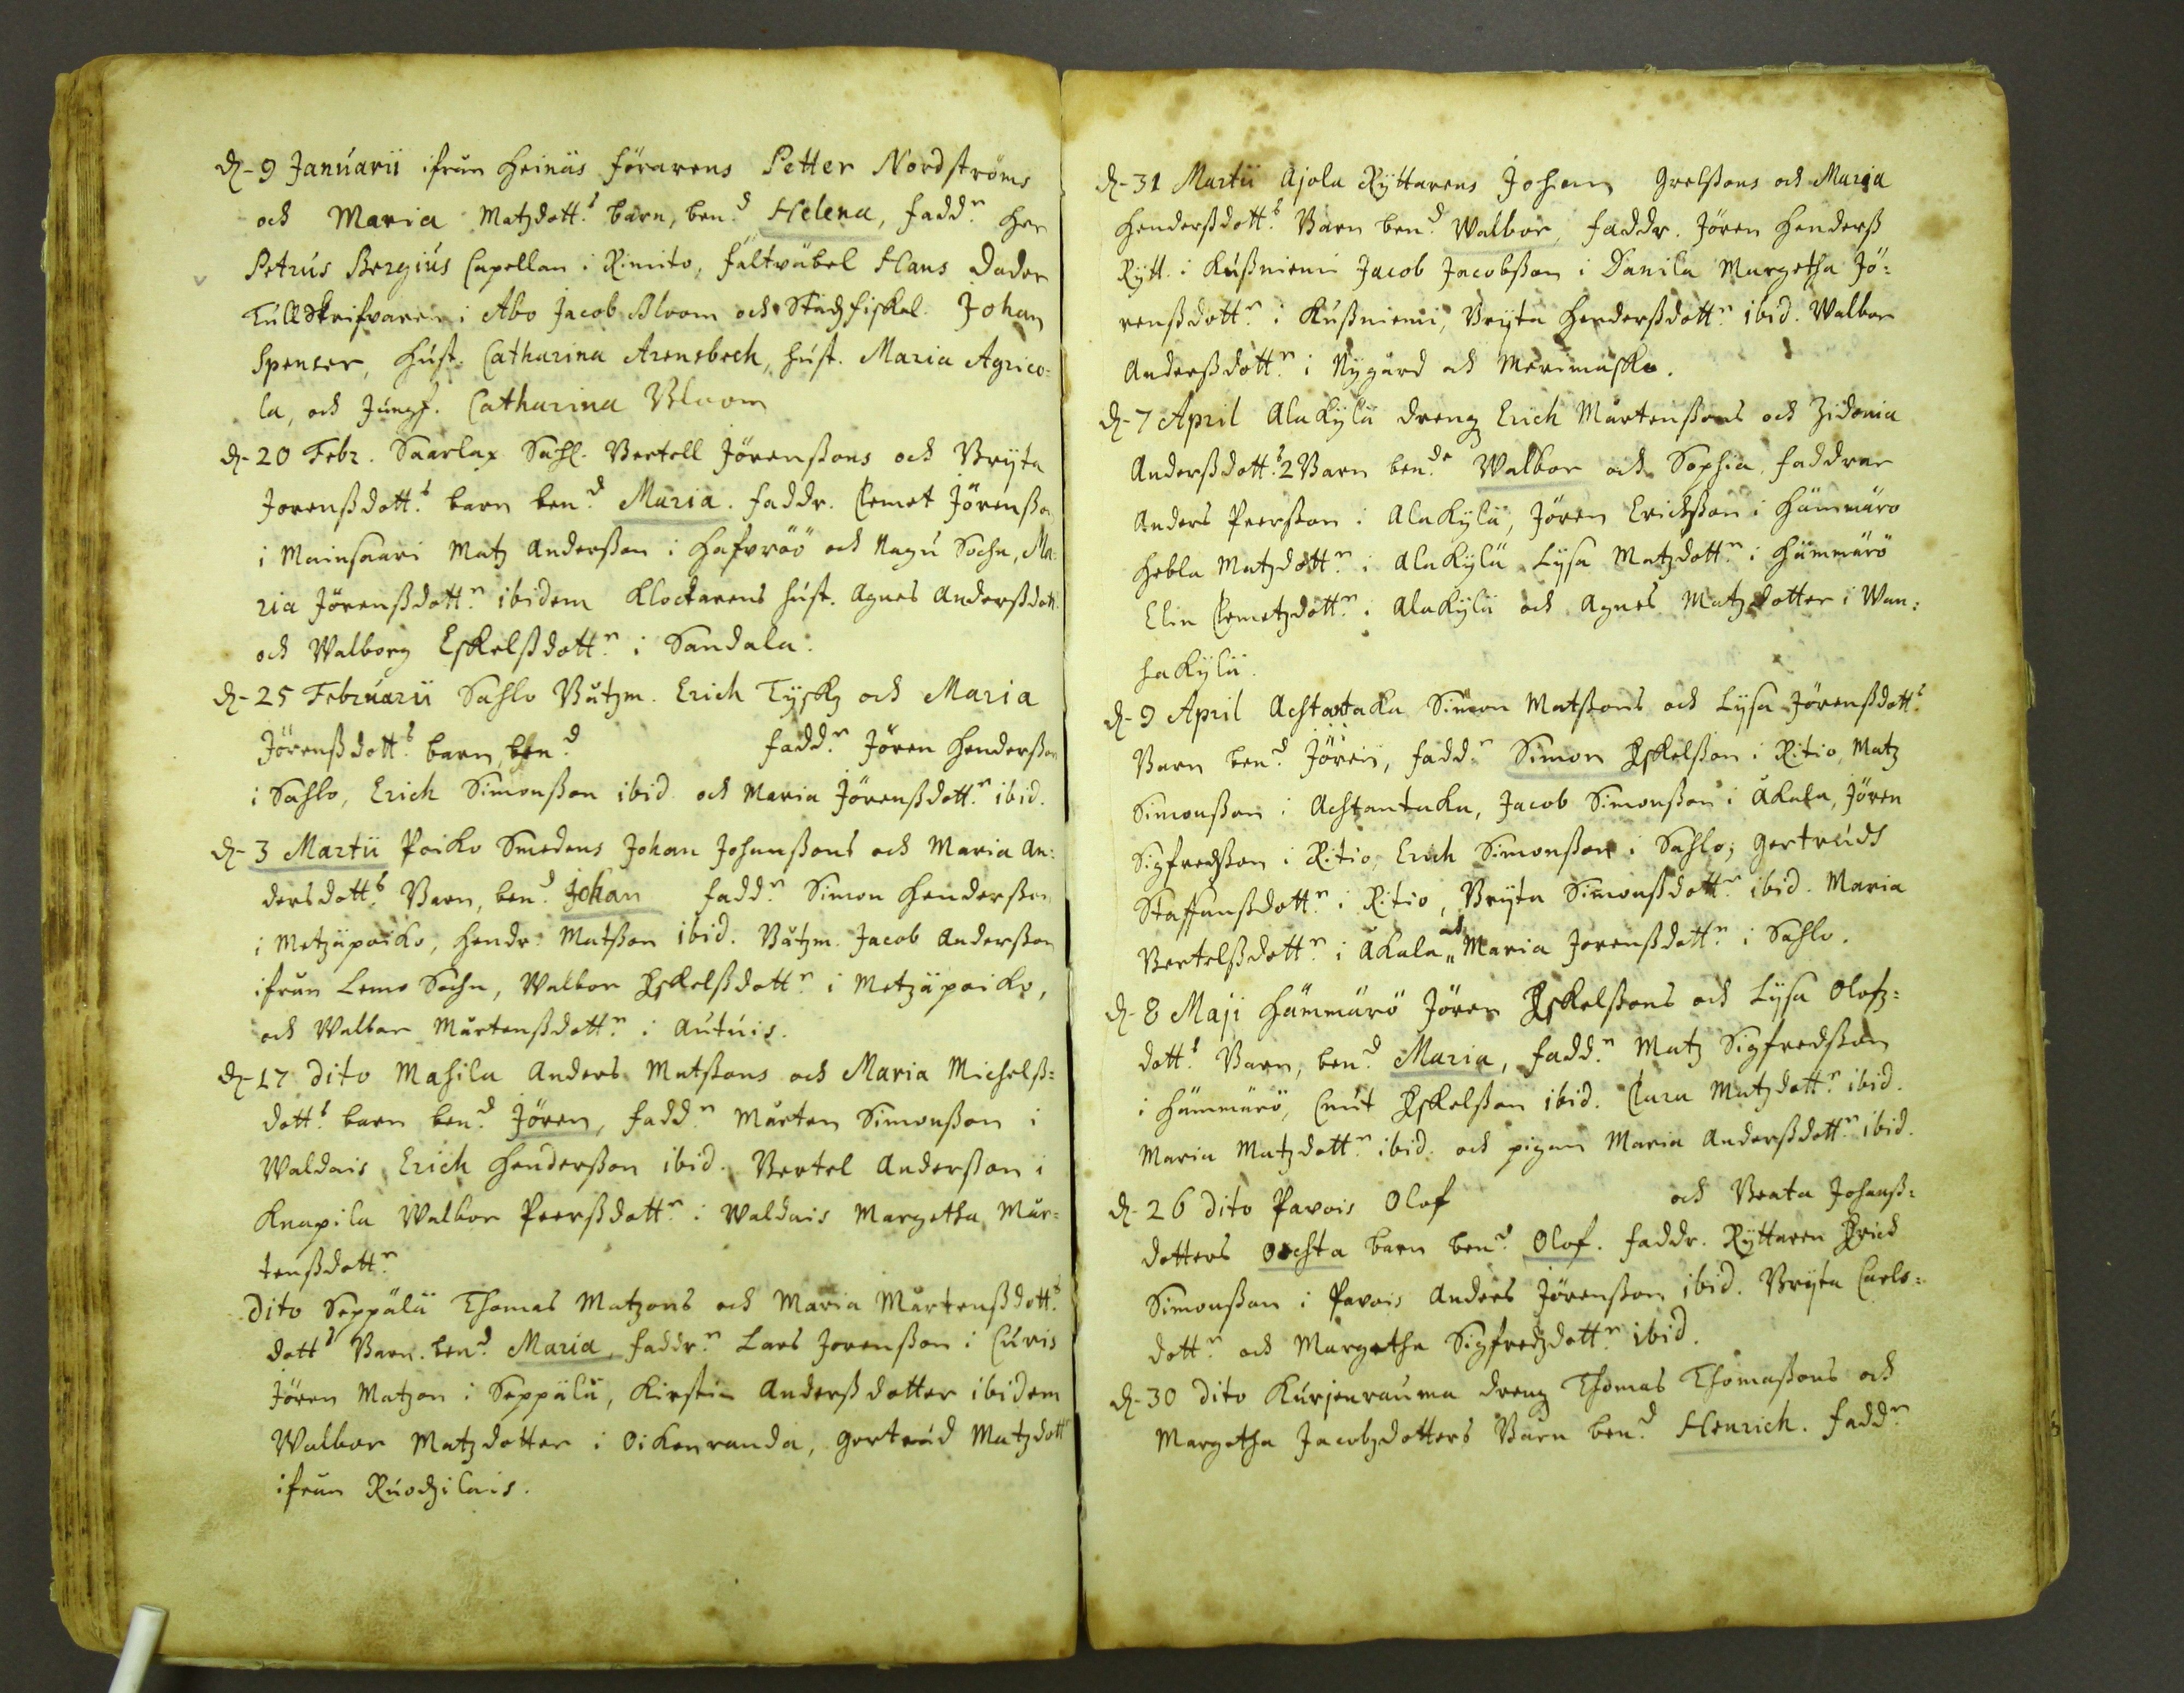 d. 9 Januarii ifrån Heinäs förarens Petter Nordströms
och Maria Matzdott:s barn, ben:d Helena, fadd:r Her
Petrus Bergius Capellan i Rimito, fältväbel Hans Dader
Tullskrifvaren i Abo Jacob Bloom och Stadzfiskal. Johan
Spenser, hust. Catharina Arensbech, hust. Maria Agrico=
la, och Jungf. Catharina Bloom
d. 20 Febr. Saarlax Sahl. Bertell Jörenßons och Bryta
Jorenßdott:s barn ben:d Maria. faddr. Clemet Jörenßon
i Mainsaari Matz Anderßon i Hafvröö och Nagu Sochn, Ma=
ria Jörenßdott:r ibidem Klockarens hust. Agnes Anderßdott
och Walborg Eskelßdott:r i Sandala.
d. 25 Februarii Sahlo Båtzm. Erich Tysk och Maria
Jörenßdott:s barn, ben:d fadd:r Jören Henderßon
i Sahlo, Erich Simonßon ibid. och Maria Jörenßdott:r ibid.
d. 3 Martii Poiko Smedens Johan Johanßons och Maria An=
dersdott:s Barn, ben:d Johan fadd:r Simon Henderßon
i Metzäpoiko, Hendr: Matßon ibid. Båtzm. Jacob Anderßon
ifrån Lemo Sochn, Walbor Eskelßdott:r i Metzäpoiko,
och Walbor Mårtenßdott:r i Autuis.
d. 17 dito Mahila Anders Matßons och Maria Michelß=
dott:s barn ben:d Jören, fadd:r Mårten Simonßon i
Waldais Erich Henderßon ibid. Bertel Anderßon i
Knapila Walbor Peerßdott:r i Waldais Margetha Mår=
tenßdott:r
dito Seppälä Thomas Matzons och Maria Mårtenßdott:s
dott:s Barn. ben:d Maria, faddr:n Lars Jorenßon i Curis
Jören Matzon i Seppälä, Kirstin Anderßdotter ibidem
Walbor Matzdotter i Oikenranda, Gertrud Matzdott
ifrån Ruodzilais.
d. 31 Martii Ajola Ryttarens Johan Grelßons och Maria
Henderßdott:s Barn ben:d Walbor, faddr. Jören Henderß
Rytt. i Kußniemi Jacob Jacobßon i Danila Margetha Jö=
renßdott:r i Kußniemi, Bryta Henderßdott:r ibid. Walbor
Anderßdott:r i Nygård och Merimasko.
d. 7 April Alakylä dreng Erich Mårtenßons och Zidonia
Anderßdott:s 2 Barn ben:de Walbor och Sophia faddrar
Anders Peerßon i Alakylä, Jören Erichßon i Hämmärö
Hebla Matzdott:r i Alakylä Lysa Matzdott:r i Hämmärö
Elin Clemetzdott:r i Alakylä och Agnes Matzdotter i Wan=
hakylä.
d. 9 April Achtantaka Simon Matßons och Lysa Jörenßdott:s
Barn ben:d Jören, fadd:r Simon Eskelßon i Ritio, Matz
Simonßon i Achtantaka, Jacob Simonßon i Åkala, Jören
Sigfredßon i Ritio, Erich Simonßon i Sahlo, Gertrudh
Staffanßdott:r i Ritio, Bryta Simonßdott:r ibid. Maria
Bertelßdott:r i Åkala och Maria Jorenßdott:r i Sahlo.
d. 8 Maji Hämmärö Jören Eskelßons och Lysa Olofz=
dott:s Barn, ben:d Maria, fadd:r Matz Sigfredßon
i Hämmärö, Cnut Eskelßon ibid. Clara Matzdott:r ibid.
Maria Matzdott:r ibid. och pigan Maria Anderßdott:r ibid.
d. 26 dito Pavois Olof och Beata Johanß=
dotters oechta barn ben:d Olof. faddr. Ryttaren Erich
Simonßon i Pavois Anders Jörenßon ibid. Bryta Carls=
dott:r och Margetha Sigfredzdott:r ibid.
d. 30 dito Kurjenrauma dreng Thomas Thomaßons och
Margetha Jacobzdotters Barn ben:d Henrich. fadd:r